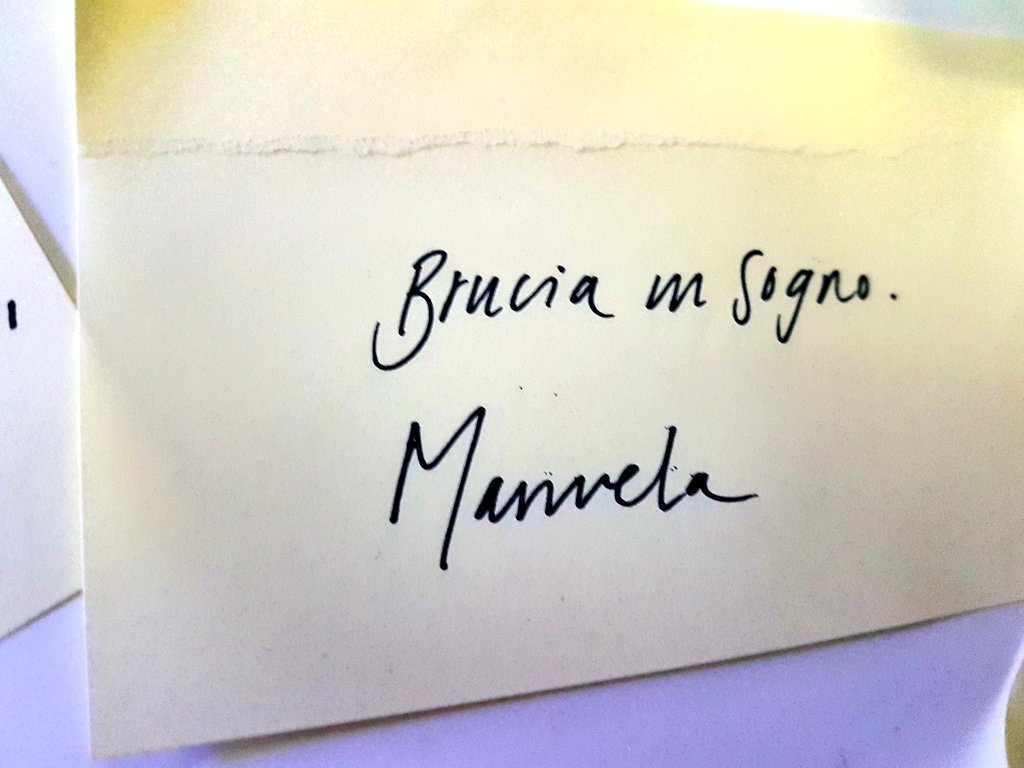 Brucia in sogno.
Manuela